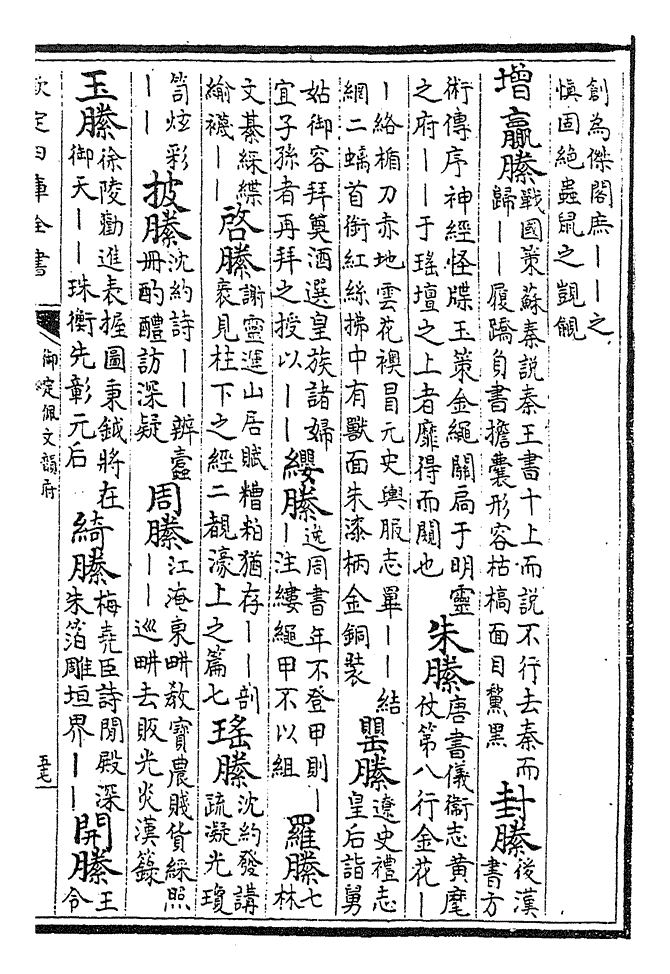 創為傑閣庶丨丨之
慎固絕蟲鼠之覬覦
增
贏縢
戰國策蘇秦說秦王書十上而說不行去秦而
歸丨丨履蹻負書擔囊形容枯槁面目黧黑
封縢
後漢
書方
術傳序神經怪牒玉策金繩關扃于明靈
之府丨丨于瑤壇之上者靡得而闚也
朱縢
唐書儀衞志黃麾
仗第八行金花丨
丨絡楯刀赤地雲花襖冒元史輿服志罼丨丨結
網二螭首銜紅絲拂中有獸面朱漆柄金銅裝
罌縢
遼史禮志
皇后詣舅
姑御容拜奠酒選皇族諸婦
宜子孫者再拜之授以丨丨
纓縢
逸周書年不登甲則丨
丨注縷繩甲不以組
羅縢
七
林
文綦綵緤
緰襪丨丨
啓縢
謝靈運山居賦糟粕猶存丨丨剖
袠見柱下之經二覩濠上之篇七
瑤縢
沈約發講
疏凝光瓊
笥炫彩
丨丨
披縢
沈約詩丨丨辨蠹
冊酌醴訪深疑
周縢
江淹東畊敎寶農賤貨綵照
丨丨巡畊去販光炎漢籙
玉縢
徐陵勸進表握圖秉鉞將在
御天丨丨珠衡先彰元后
綺縢
梅堯臣詩閒殿深
朱箔雕垣界丨丨
開縢
王
令
欽定四庫全書
御定佩文韻府